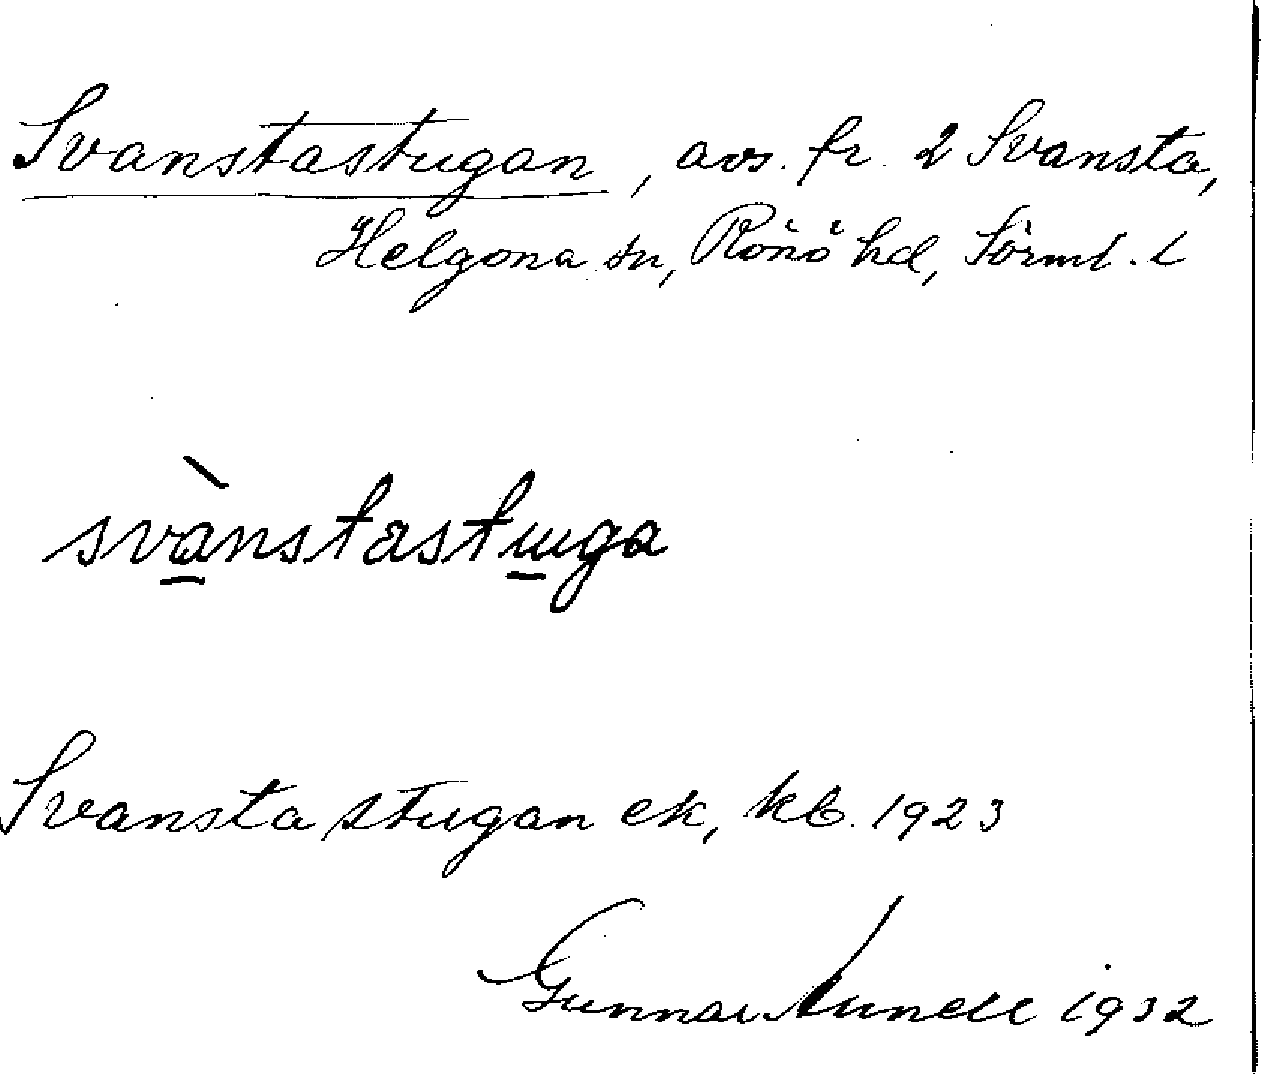 Svanstastugan, avs. fr. 2 Svansta,
Helgona sn, Rönö hd, Sörml. l
svànstastuga
Svansta stugan ek, kb. 1923
Gunnar 1932